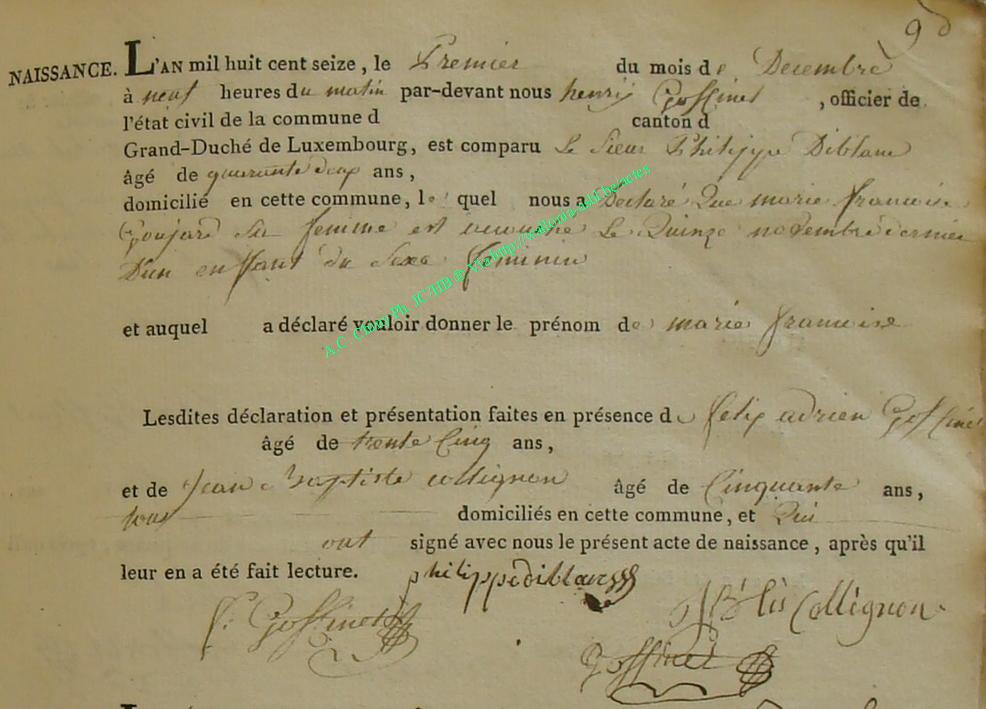 9
NAISSANCE. L'AN mil huit cent seize, le Premier du mois de Decembre
à neuf heures du matin par-devant nous henry Goffinet, officier de
l'état civil de la commune d canton d
Grand-Duché de Luxembourg, est comparu le Sieur Philippe Diblanc
âgé de quarante deux ans,
domicilié en cette commune, le quel nous a Declaré Que marie francoise
Goujard Sa femme est accouché Le Quinze novembre dernier
D'un enfant du Sexe feminin
et auquel a déclaré vouloir donner le prénom de marie francoise
Lesdites déclaration et présentation faites en présence de felix adrien Goffinet
âgé de trente Cinq ans,
et de Jean Baptiste collignon âgé de Cinquante ans,
tous domiciliés en cette commune, et Qui
ont signé avec nous le présent acte de naissance, après qu'il
leur en a été fait lecture. philippe diblanc
f: Goffinet J B Collignon
Goffinet
A.C. Chiny Ph. JC°HB & Via http://wallonia-asbl.be/actes